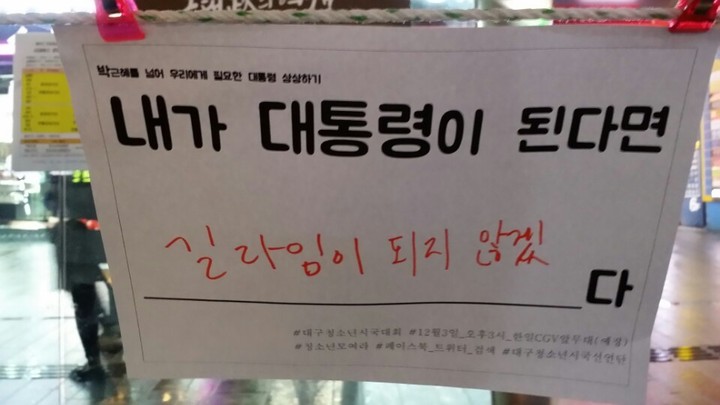 박근혜를 넘어 우리에게 필요한 대통령 상상하기
내가 대통령이 된다면
길라임이 되지 않겠
다
#대구청소년시국대회 #12월3일_오후3시_한일CGV앞무대(예정)
#청소년모여라 #페이스북_트위터_검색 #대구청소년시국선언단